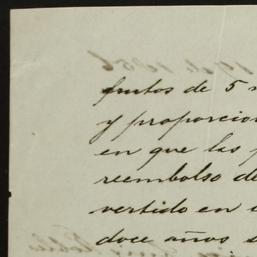 frutos de 5
y proporcion
en que las
reembolso de
vertido en
doce años